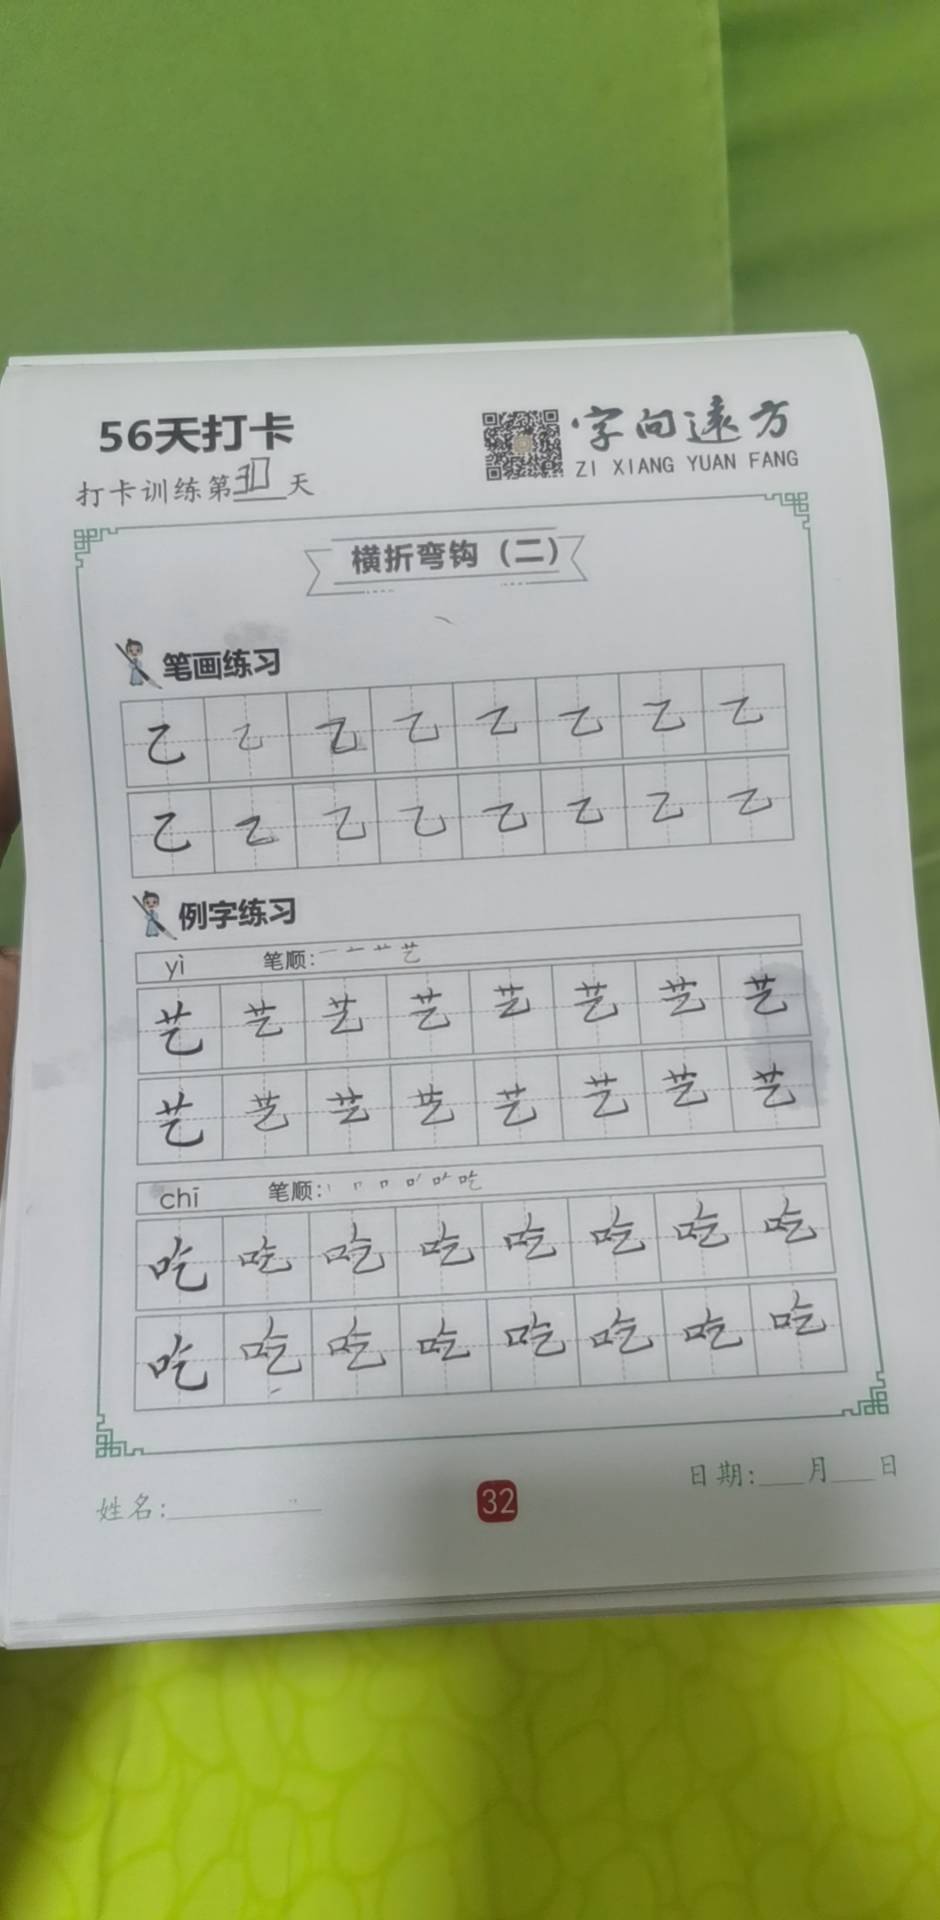 56天打卡
字向远方
ZI XIANG YUAN FANG
打卡训练第30天
横折弯钩（二）
笔画练习
乙 乙 乙 乙 乙 乙 乙 乙
乙 乙 乙 乙 乙 乙 乙 乙
例字练习
yì 笔顺: 一 十 艹 艺
艺 艺 艺 艺 艺 艺 艺 艺
艺 艺 艺 艺 艺 艺 艺 艺
chī 笔顺: 丨 冂 口 口丿 口𠂉 吃
吃 吃 吃 吃 吃 吃 吃 吃
吃 吃 吃 吃 吃 吃 吃 吃
姓名:
32
日期: 月 日